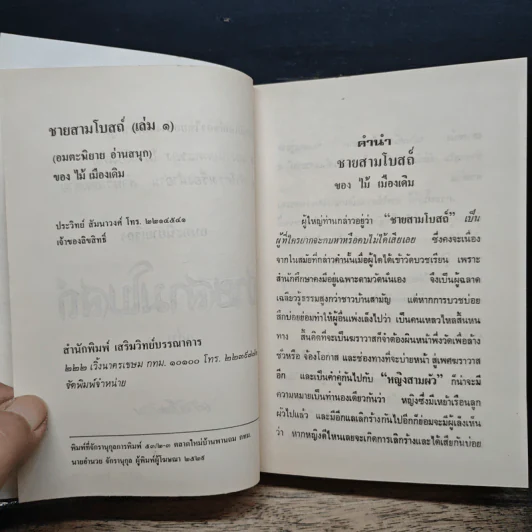 ชายสามโบสถ์ (เล่ม ๑)
(อมตะนิยาย อ่านสนุก)
ของ ไม้ เมืองเดิม
ประวิทย์ สัมนาวงศ์ โทร. ๒๒๑๔๕๔๑
เจ้าของลิขสิทธิ์
สำนักพิมพ์ เสริมวิทย์บรรณาคาร
๒๒๒ เวิ้งนาครเขษม กทม. ๑๐๑๐๐ โทร.
จัดพิมพ์จำหน่าย
พิมพ์ที่จักรานุกูลการพิมพ์ ๕๓/๒-๓ ตลาดใหม่บ้านพานถม กทม.
นายอำนวย จักรานุกูล ผู้พิมพ์ผู้โฆษณา ๒๕๒๕
คำนำ
ชายสามโบสถ์
ของ ไม้ เมืองเดิม
ผู้ใหญ่ท่านกล่าวอยู่ว่า “ชายสามโบสถ์” เป็น
ผู้ที่ใครยากจะคบหาหรือคบไม่ได้เสียเลย ซึ่งคงจะเนื่อง
จากในสมัยที่กล่าวคำนั้นเมื่อผู้ใดได้เข้าวัดบวชเรียน เพราะ
สำนักศึกษาคงมีอยู่เฉพาะตามวัดนั่นเอง จึงเป็นผู้ฉลาด
เฉลียวรู้ธรรมสูงกว่าชาวบ้านสามัญ แต่หากการบวชบ่อย
สึกบ่อยย่อมทำให้ผู้อื่นเพ่งเล็งไปว่า เป็นคนเหลวไหลสิ้นหน
ทาง สิ้นคิดที่จะเป็นฆราวาสก็จำต้องผินหน้าพึ่งวัดเพื่อล้าง
ชวหรือ จ้องโอกาส และช่องทางที่จะบ่ายหน้า สู่เพศฆราวาส
อีก และเป็นคำคู่กันไปกับ “หญิงสามผัว” ก็น่าจะมี
ความหมายเป็นทำนองเดียวกันว่า หญิงซึ่งมีเหย้าเรือนลูก
ผัวไปแล้ว และมีอีกแลเลิกร้างกันไปอีกก็ย่อมจะมีผู้เล็งเห็น
ว่า หากหญิงดีไหนเลยจะเกิดการเลิกร้าง และได้เสียกันบ่อย